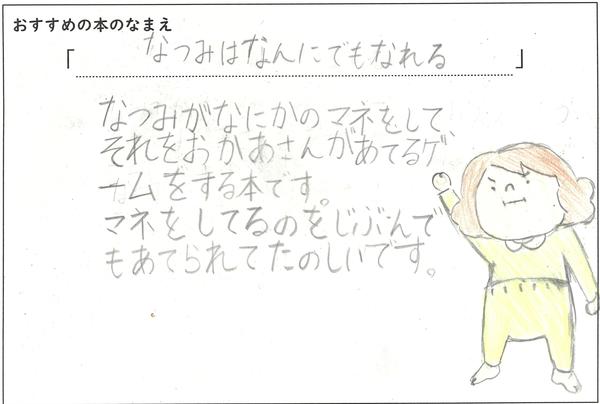 おすすめの本のなまえ
「なつみはなんにでもなれる」
なつみがなにかのマネをして
それをおかあさんがあてるゲ
ームをする本です。
マネをしてるのをじぶんで
もあてられてたのしいです。